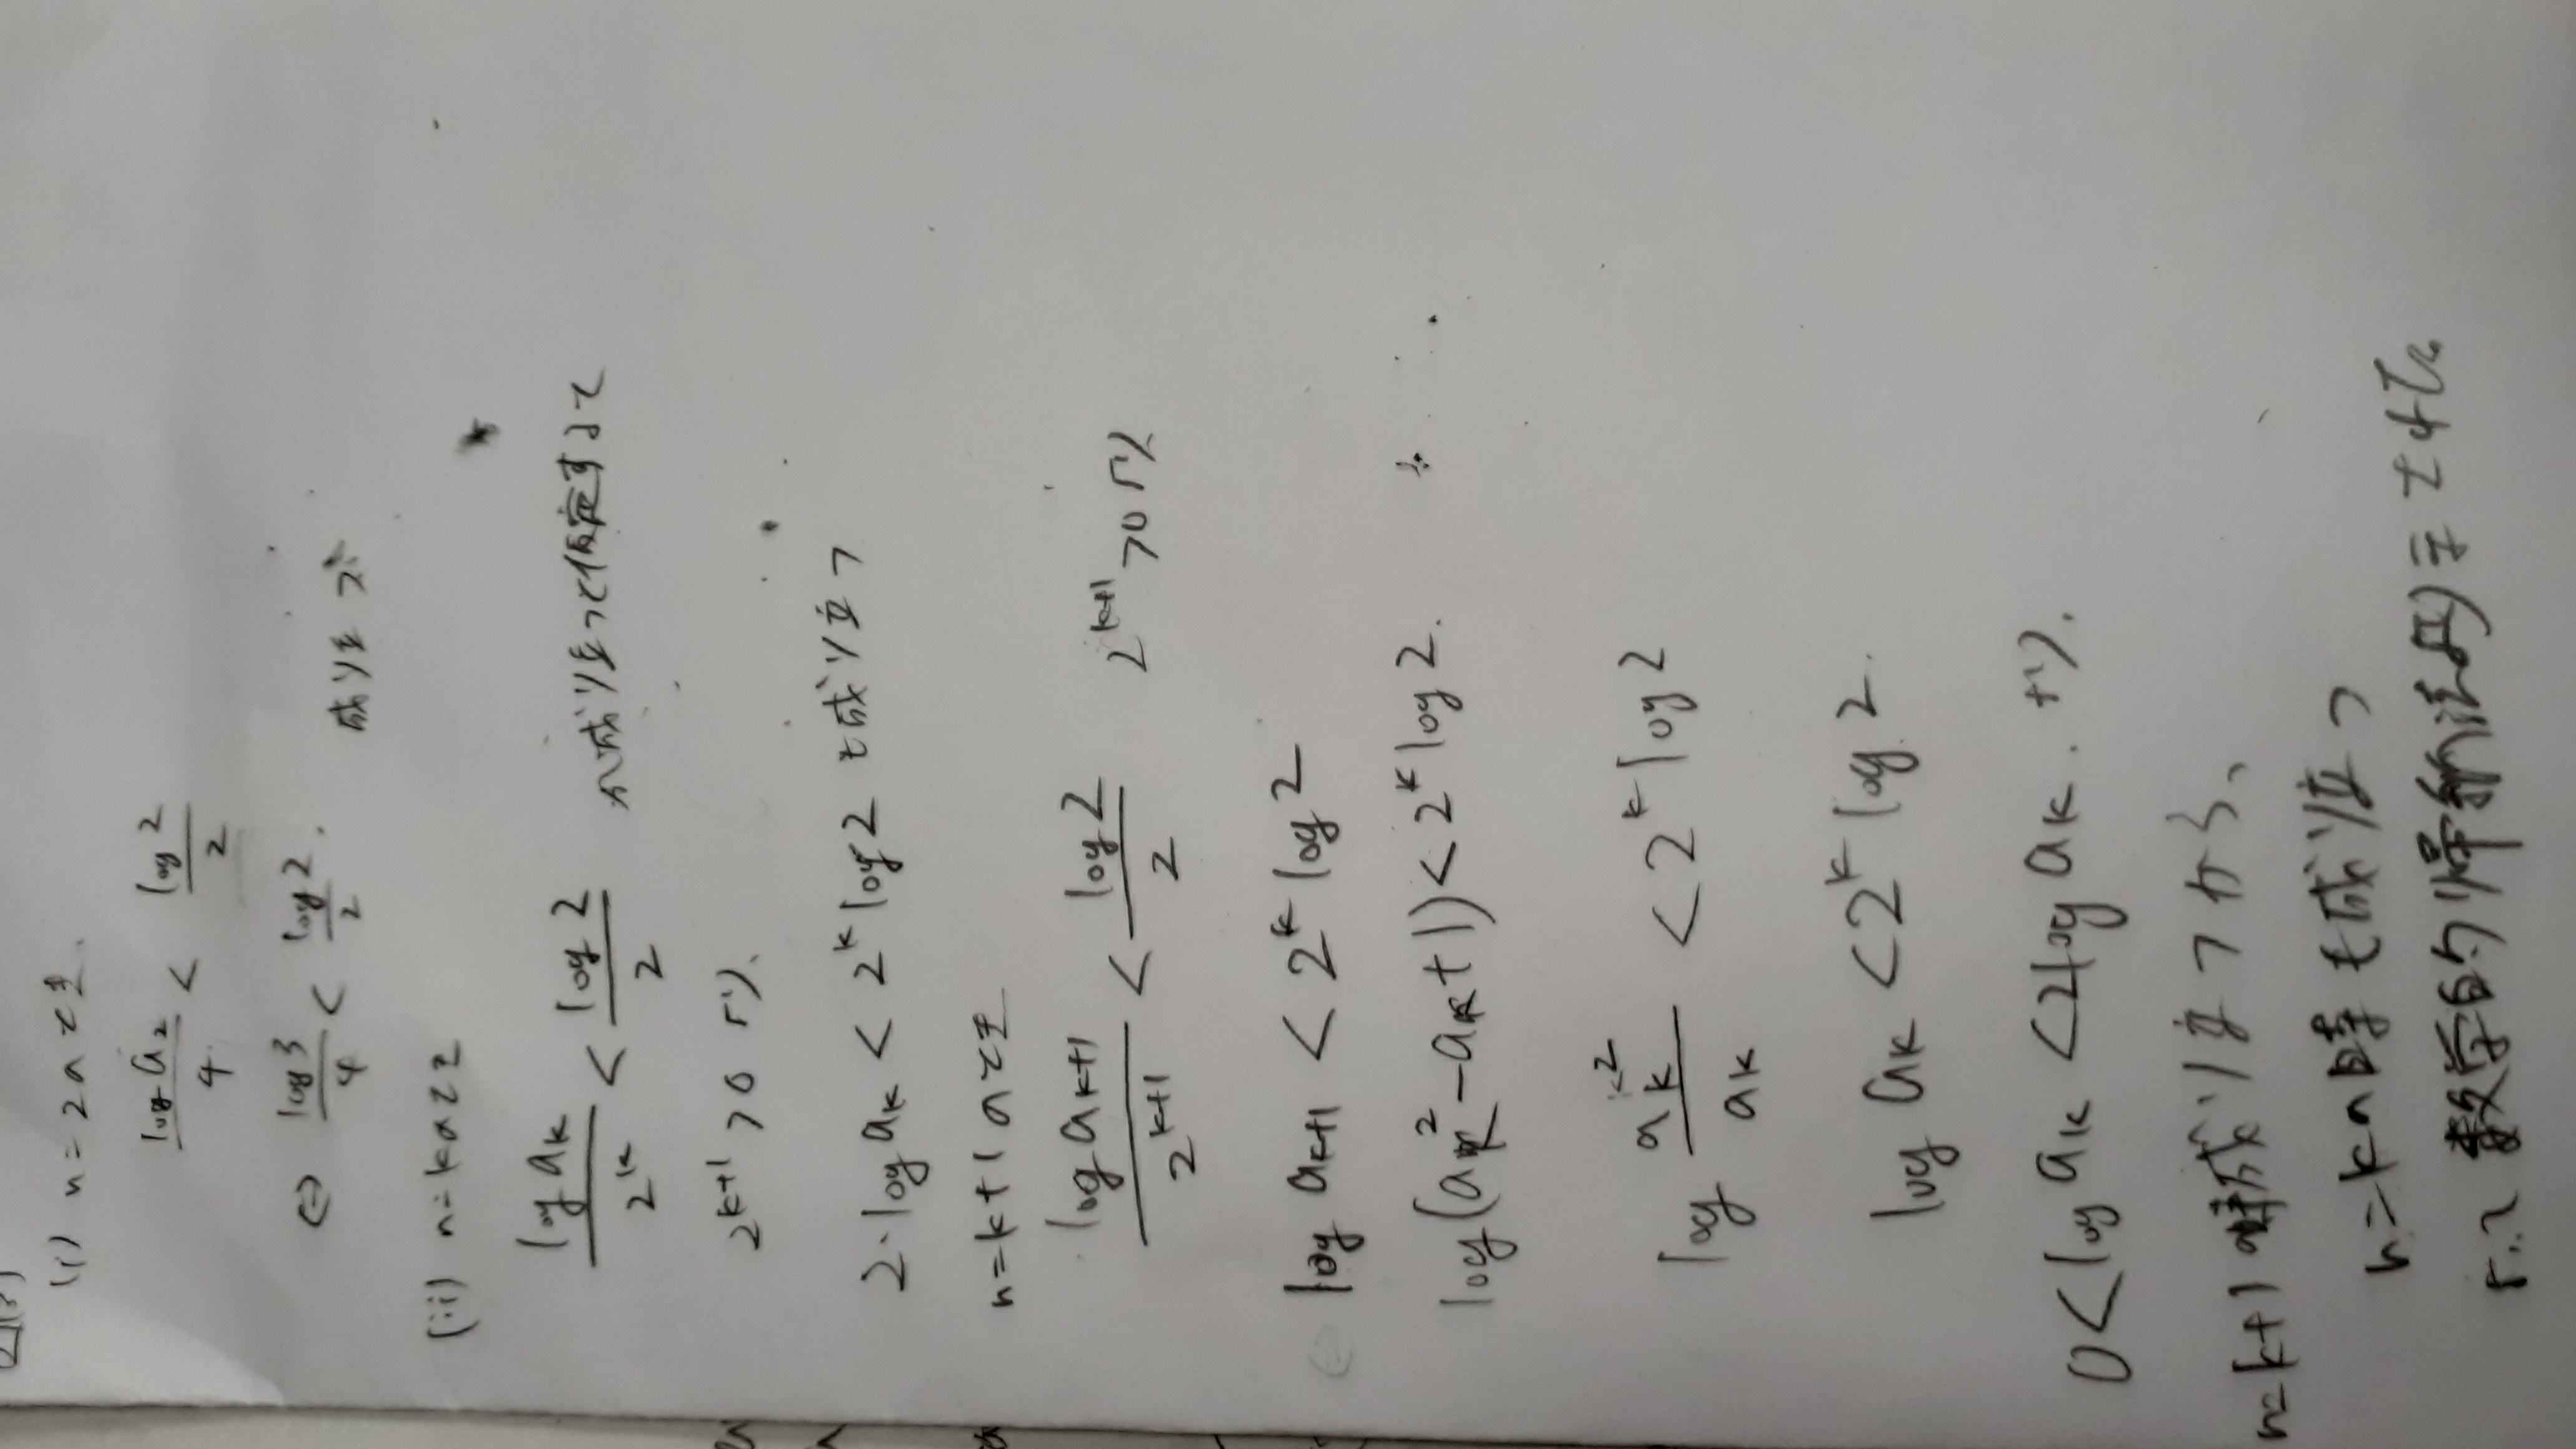 (i) n=2のとき
log a₂/4 < log2/2
⇔ log3/4 < log2/2. 成り立つ
(ii) n=kのとき
log aₖ/2ᵏ < log2/2 が成り立つと仮定すると
2ᵏ⁺¹>0より、
2・log aₖ < 2ᵏ log2 も成り立つ
n=k+1のとき
log aₖ₊₁/2ᵏ⁺¹ < log2/2 2ᵏ⁺¹>0より
log aₖ₊₁ < 2ᵏ log2
log(aₖ²-aₖ+1)<2ᵏ log2.
log aₖ²/aₖ < 2ᵏ log2
log aₖ < 2ᵏ log2.
0<log aₖ <2log aₖ. より.
n=k+1 成り立つから、
n=kの時も成り立つ
よって数学的帰納法より